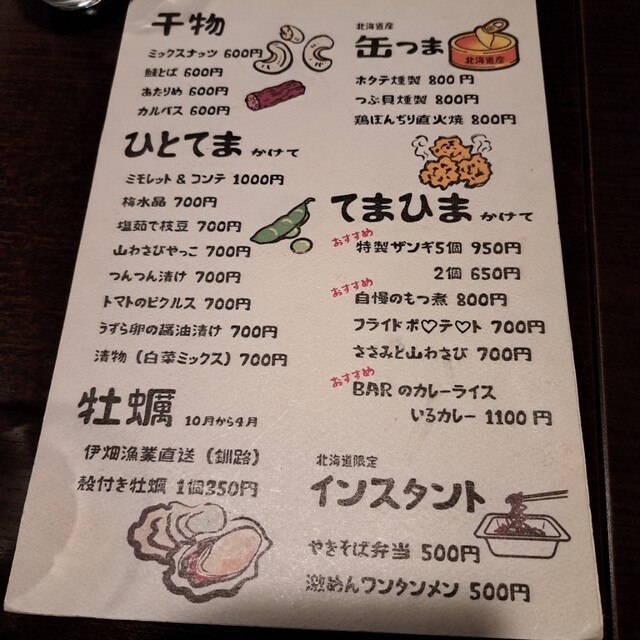 干物
ミックスナッツ 600円
鮭とば 600円
あたりめ 600円
カルパス 600円
ひとてま かけて
ミモレット & コンテ 1000円
梅水晶 700円
塩茹で枝豆 700円
山わさびやっこ 700円
つんつん漬け 700円
トマトのピクルス 700円
うずら卵の醤油漬け 700円
漬物（白菜ミックス）700円
牡蠣 10月から4月
伊畑漁業直送（釧路）
殻付き牡蠣 1個350円
北海道産
缶つま
北海道産
ホタテ燻製 800円
つぶ貝燻製 800円
鶏ぼんぢり直火焼 800円
てまひま かけて
おすすめ
特製ザンギ5個 950円
2個 650円
おすすめ
自慢のもつ煮 800円
フライドポ♡テ♡ト 700円
ささみと山わさび 700円
おすすめ
BARのカレーライス
いるカレー 1100円
北海道限定
インスタント
やきそば弁当 500円
激めんワンタンメン 500円